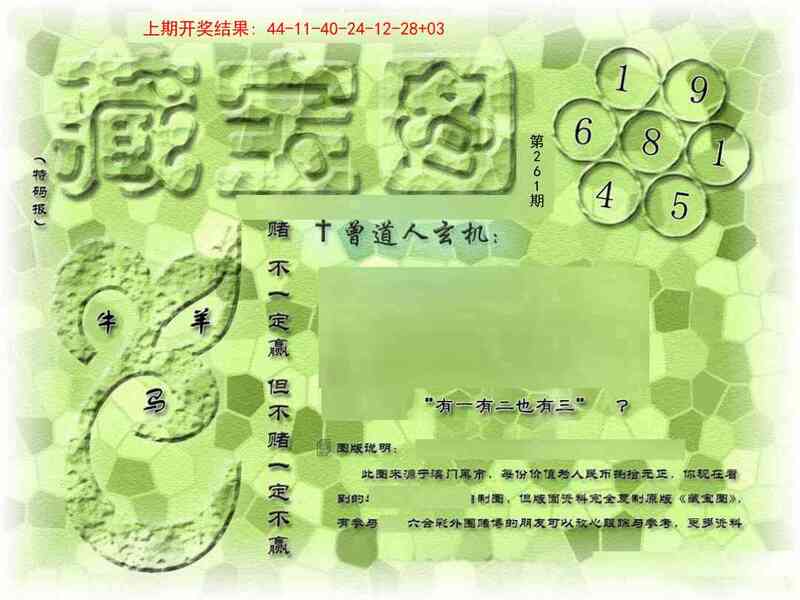 上期开奖结果: 44-11-40-24-12-28+03
藏宝图
(特码报)
第261期
1 9
6 8 1
4 5
曾道人玄机:
赌不一定赢但不赌一定不赢
牛 羊
马
"有一有二也有三" ?
图版说明:
此图来源于澳门黑市,每份价值为人民币捌拾元正,你现在看
到的 制图,但版面资料完全复制原版《藏宝图》,
有参与 六合彩外围赌博的朋友可以放心跟踪与参考,更多资料